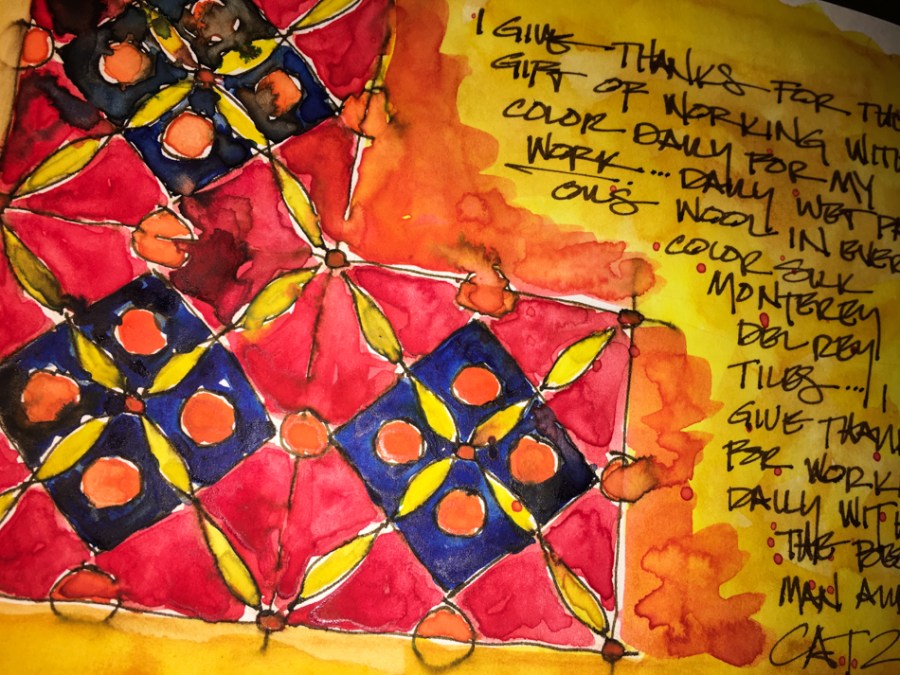 I GIVE THANKS FOR THE
GIFT OF WORKING WITH
COLOR DAILY FOR MY
WORK... DAILY WET
OILS WOOL IN EVER
COLOR SILK
MONTEREY
DEL REY
TILES... I
GIVE THAN
FOR WORK
DAILY WITH
THE BES
MAN
CAT 2